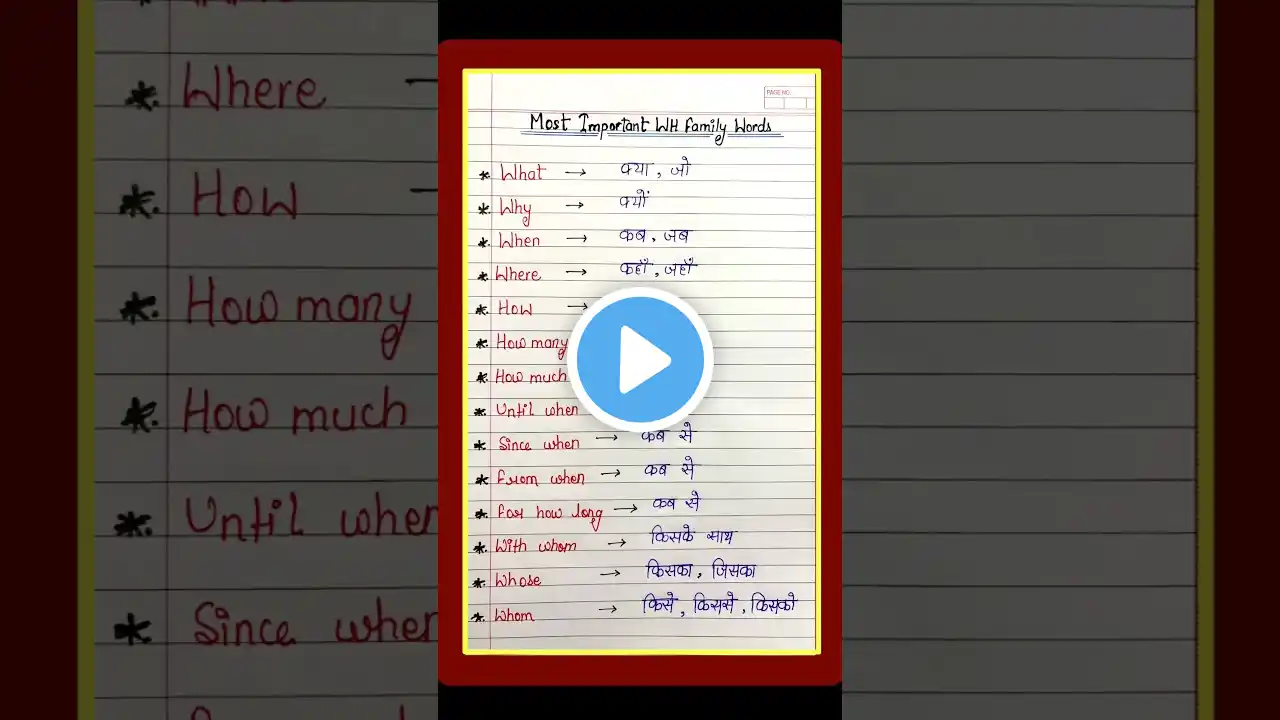 PAGE NO.
Most Important WH Family Words
* What → क्या, जो
* Why → क्यों
* When → कब, जब
* Where → कहाँ, जहाँ
* How →
* How many
* How much
* Until when
* Since when → कब से
* From when → कब से
* For how long → कब से
* With whom → किसके साथ
* Whose → किसका, जिसका
* Whom → किसे, किससे, किसको
*. Where
*. How
*. How many
*. How much
*. Until when
* Since when